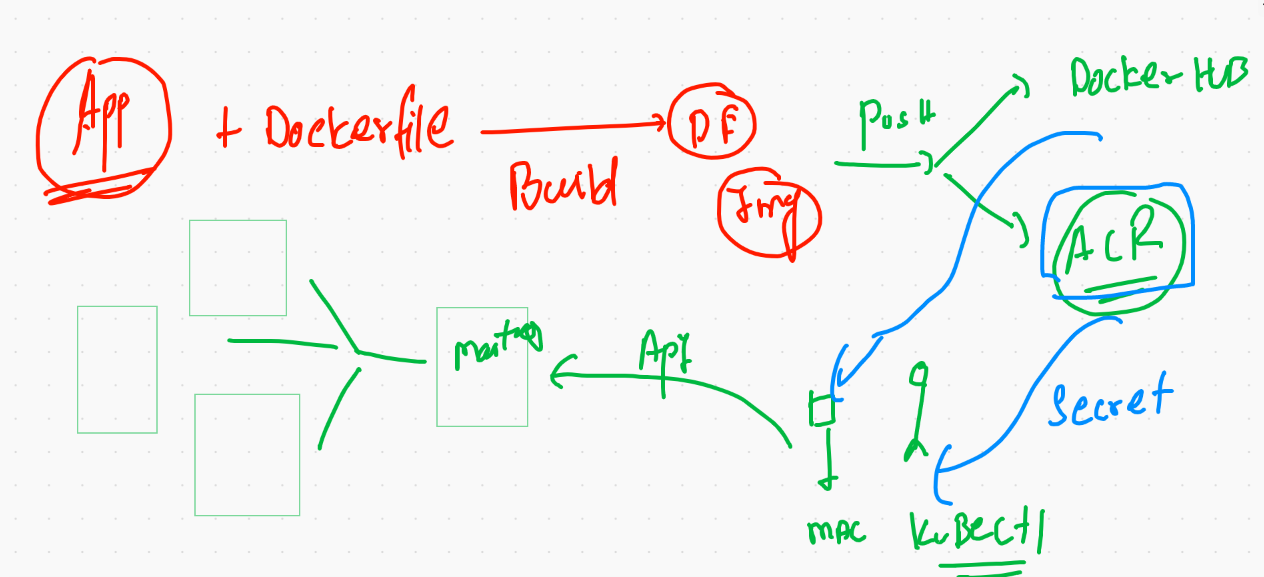 App + Dockerfile
Build
DF
Img
Push
Docker HUB
ACR
Master
API
Secret
MAC
KuBECtl